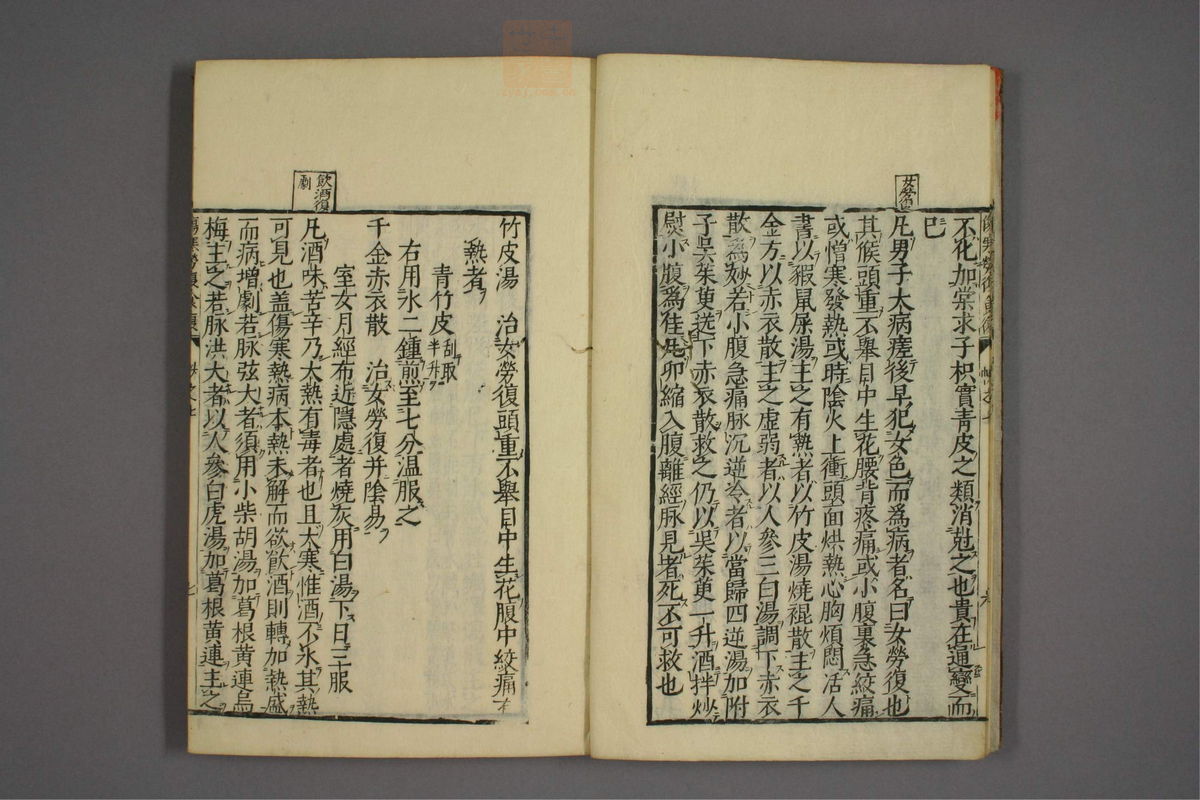 不化加棠求子枳實青皮之類消尅之也貴在通變而
巳
女勞復
凡男子大病瘥後早犯女色而爲病者名曰女勞復也
其候頭重不舉目中生花腰背疼痛或小腹裏急絞痛
或憎寒發熱或時陰火上衝頭面烘熱心胸煩悶活人
書以猳鼠屎湯主之有熱者以竹皮湯燒裩散主之千
金方以赤衣散主之虛弱者以人參三白湯調下赤衣
散爲妙若小腹急痛脉沉逆冷者以當歸四逆湯加附
子吳茱萸送下赤衣散救之仍以吳茱萸一升酒拌炒
熨小腹爲佳凡卵縮入腹離經脉見者死不可救也
竹皮湯 治女勞復頭重不舉目中生花腹中絞痛有
熱者
青竹皮刮取半升
右用水二鍾煎至七分温服之
千金赤衣散 治女勞復并陰易
室女月經布近隱處者燒灰用白湯下日三服
飲酒復
劇
凡酒味苦辛乃大熱有毒者也且大寒惟酒不氷其熱
可見也盖傷寒熱病本熱未解而欲飮酒則轉加熱盛
而病增劇若脉弦大者須用小柴胡湯加葛根黃連烏
梅主之若脉洪大者以人參白虎湯加葛根黃連主之